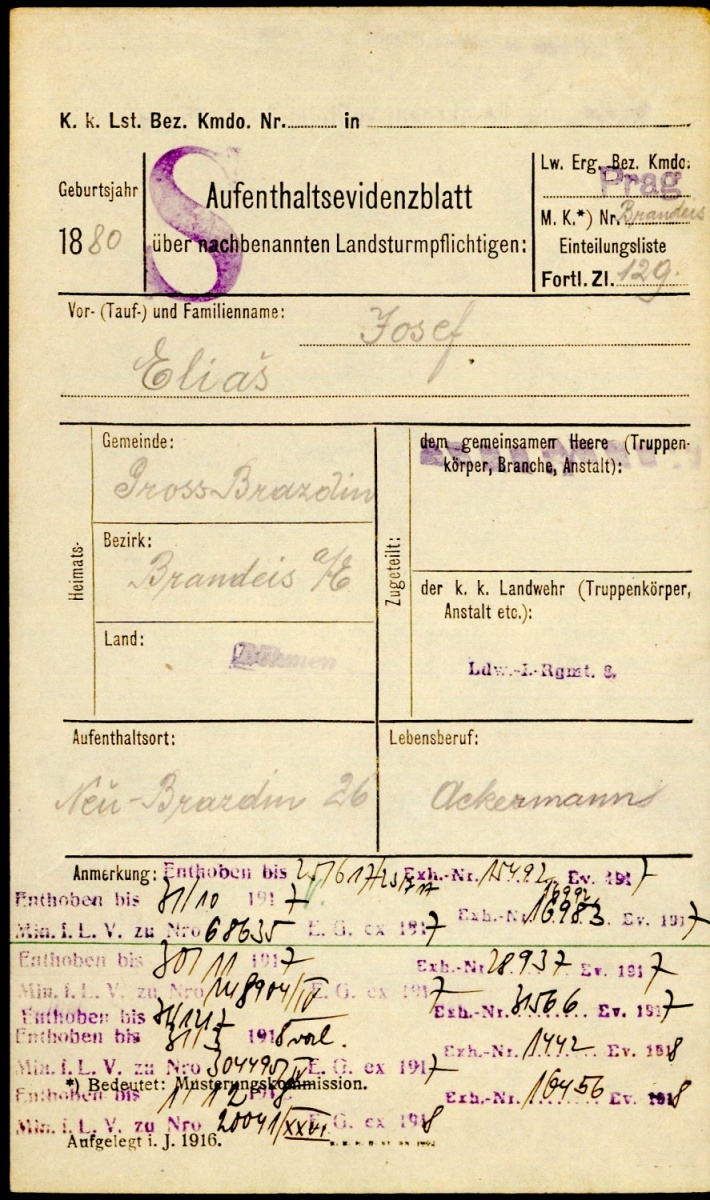 K. k. Lst. Bez. Kmdo. Nr. in
Geburtsjahr
1880
S
Aufenthaltsevidenzblatt
über nachbenannten Landsturmpflichtigen:
Lw. Erg. Bez. Kmdo:
Prag
M. K.*) Nr. Brandeis
Einteilungsliste
Fortl. Zl. 129.
Vor- (Tauf-) und Familienname:
Josef
Eliaš
Heimats-
Gemeinde:
Gross-Brazdin
Bezirk:
Brandeis a/E
Land:
Böhmen
Zugeteilt:
dem gemeinsamen Heere (Truppen-
körper, Branche, Anstalt):
der k. k. Landwehr (Truppenkörper,
Anstalt etc.):
Ldw.-I.-Rgmt. 8,
Aufenthaltsort:
Neu-Brazdin 26
Lebensberuf:
Ackermann
Anmerkung: Enthoben bis Exh.-Nr. 15492 Ev. 1917
Enthoben bis 31/10 1917
16992
Min. f. L. V. zu Nro 68635 E. G. ex 1917 Exh.-Nr. 16983 Ev. 1917
Enthoben bis 30/11 1917 Exh.-Nr. 28937 Ev. 1917
Min. f. L. V. zu Nro 148904/IV E. G. ex 1917 Exh.-Nr. 31566 Ev. 1917
Enthoben bis 31/12 7
Enthoben bis 31/3 1918 Exh.-Nr. 1442 Ev. 1918
Min. f. L. V. zu Nro E. G. ex 1917
*) Bedeutet: Musterungskommission.
Enthoben bis Exh.-Nr. 10456 Ev. 1918
Min. f. L. V. zu Nro 20041/XXVI E. G. ex 1918
Aufgelegt i. J. 1916.